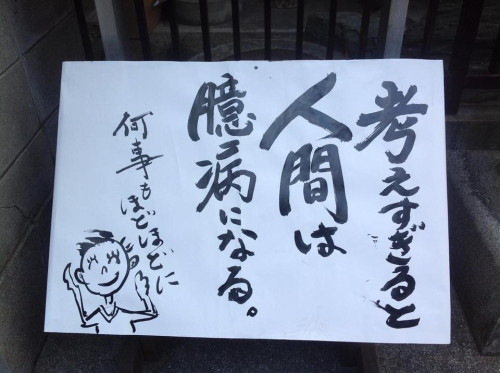 考えすぎると
人間は
臆病になる。
何事も
ほどほどに